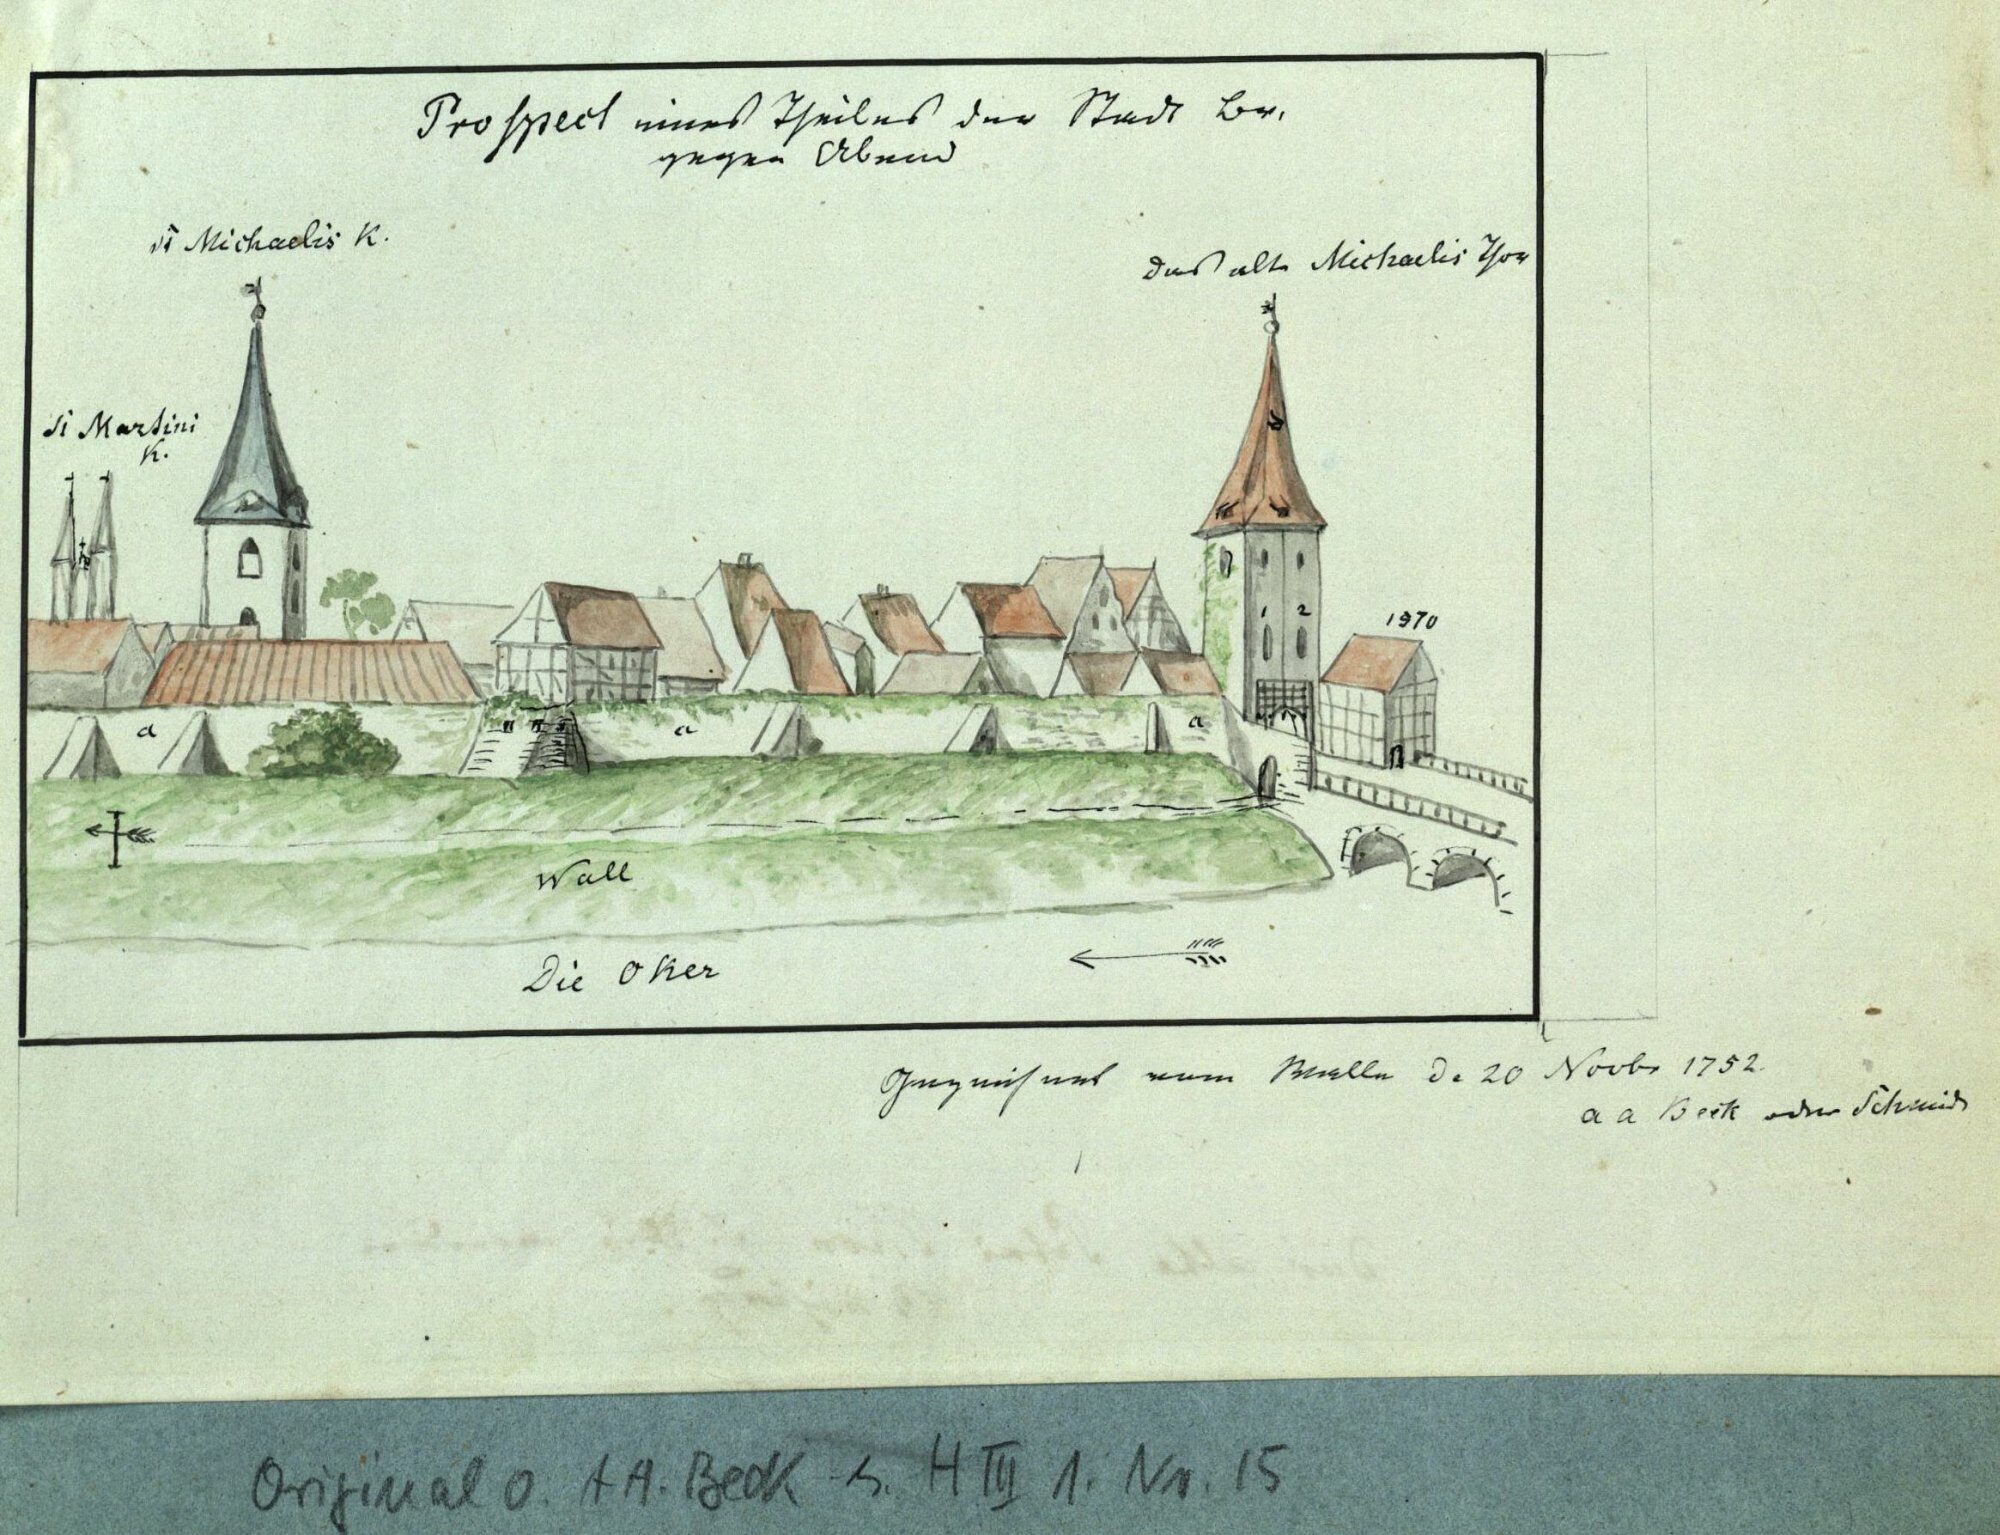 Prospect eines Theiles der Stadt Br.
gegen Abend
St Michaelis K.
das alte Michaelis Thor
St Martini
K.
1 2
1970
a a a
Wall
Die Oker
vom Walle d. 20 Novbr 1752.
a a Beck oder Schmidt
Original v. A A. Beck s. H III 1. Nr. 15